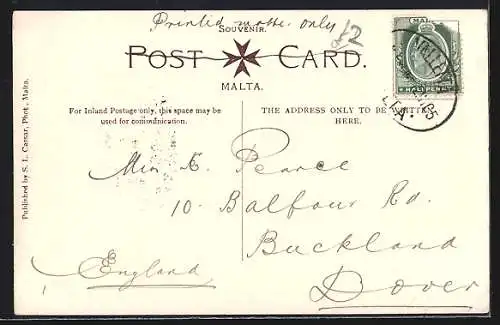 Printed matter only
£2
SOUVENIR.
POST CARD.
MALTA.
MALTA
HALFPENNY
VALLETTA
05
MALTA.
For Inland Postage only, this space may be
used for communication.
THE ADDRESS ONLY TO BE WRITTEN
HERE.
Published by S. L. Cassar, Phot., Malta.
Miss E. Pearce
10. Balfour Rd.
Buckland
Dover
England